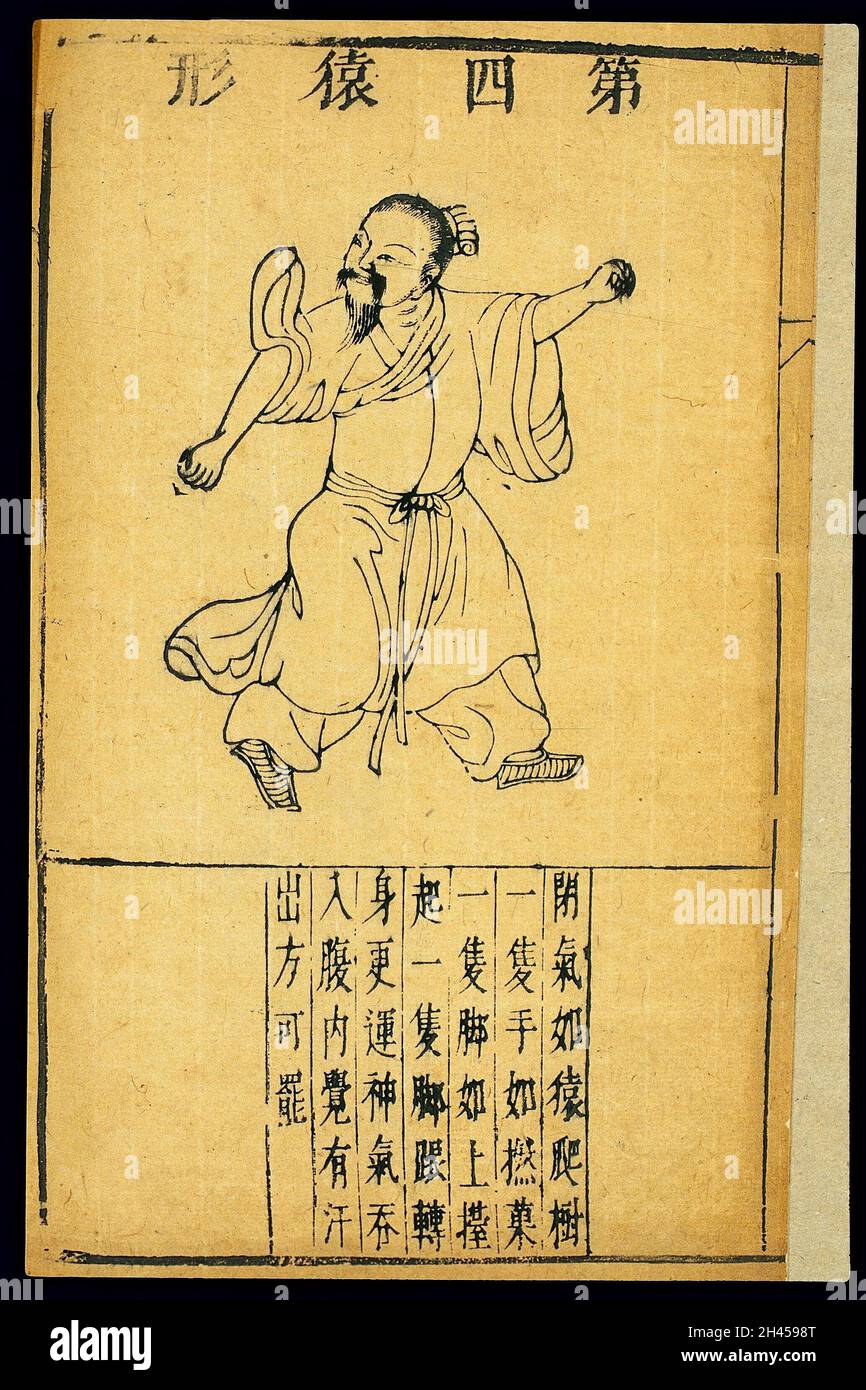 第四猿形
閉氣如猿爬樹
一隻手如撚菓
一隻脚如上擡
起一隻脚跟轉
身更運神氣吞
入腹内覺有汗
出方可罷
alamy
Image ID: 2H4598T
www.alamy.com